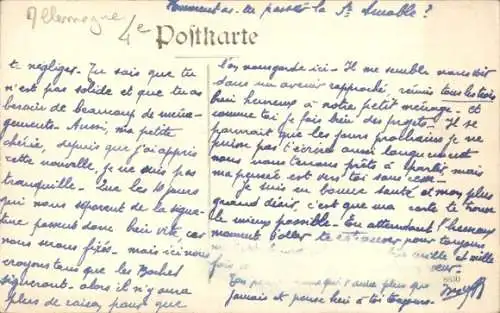 Allemagne
Comment as-tu passé la St Amable ?
4e
Postkarte
te négliges. Tu sais que tu
n'est pas solide et que tu as
besoin de beaucoup de ména-
gements. Aussi, ma petite
chérie, depuis que j'ai appris
cette nouvelle, je ne suis pas
tranquille. Que les 10 jours
qui nous séparent de la signa-
ture passent donc bien vite, car
nous serons fixés. mais ici nous
croyons tous que les Boches
signeront. alors il n'y aura
plus de raison pour que
l'on nous garde ici. Il me semble nous voir
dans un avenir rapproché, réunis tous les trois
bien heureux à notre petit ménage. et
comme toi je fais bien des projets. Il se
pourrait que les jours prochains je ne
puisse pas t'écrire aussi longuement
nous nous tenons prêts à partir, mais
ma pensée est vers toi sans cesse.
Je suis en bonne santé et mon plus
grand désir, c'est que ma carte te trouve
le mieux possible. En attendant l'heureux
moment d'aller te retrouver pour toujours
mille et mille
fois
qui t'aime plus que
jamais et pense bien à toi toujours.
8830